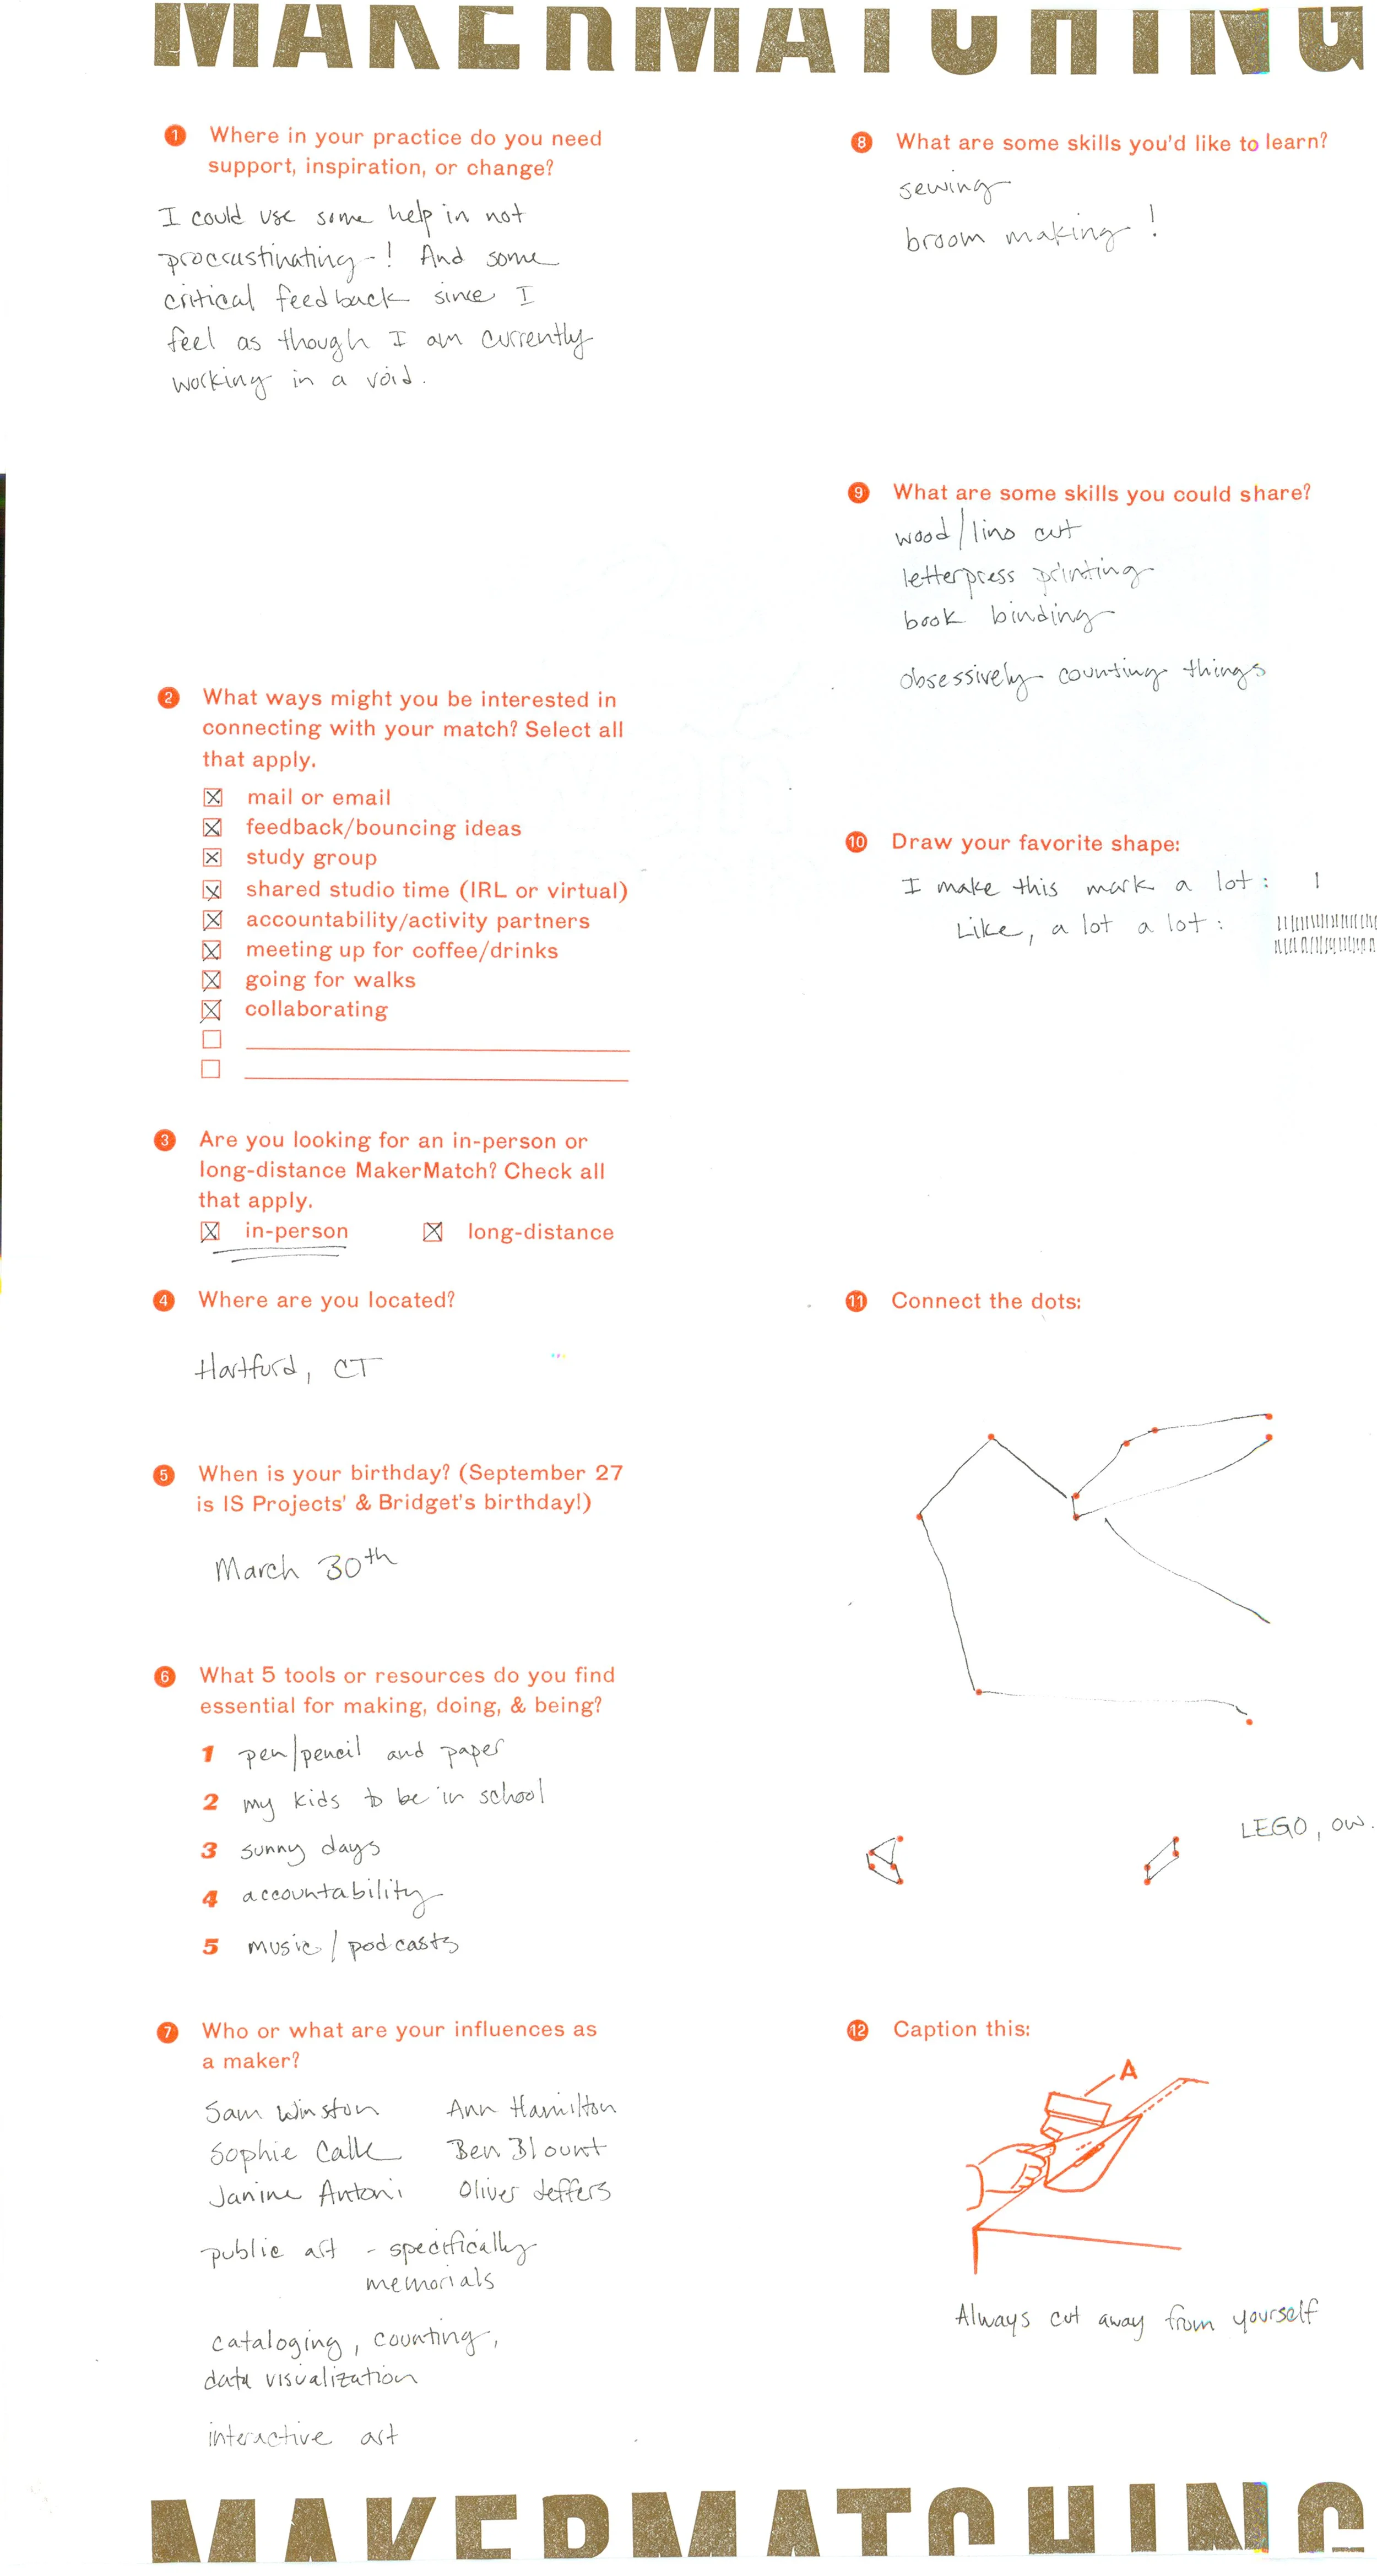 MAKERMATCHING
1 Where in your practice do you need
support, inspiration, or change?
I could use some help in not
procrastinating! And some
critical feedback since I
feel as though I am currently
working in a void.
2 What ways might you be interested in
connecting with your match? Select all
that apply.
☒ mail or email
☒ feedback/bouncing ideas
☒ study group
☒ shared studio time (IRL or virtual)
☒ accountability/activity partners
☒ meeting up for coffee/drinks
☒ going for walks
☒ collaborating
3 Are you looking for an in-person or
long-distance MakerMatch? Check all
that apply.
☒ in-person ☒ long-distance
4 Where are you located?
Hartford, CT
5 When is your birthday? (September 27
is IS Projects' & Bridget's birthday!)
March 30th
6 What 5 tools or resources do you find
essential for making, doing, & being?
1 pen/pencil and paper
2 my kids to be in school
3 sunny days
4 accountability
5 music/podcasts
7 Who or what are your influences as
a maker?
Sam Winston Ann Hamilton
Sophie Calle Ben Blount
Janine Antoni Oliver Jeffers
public art - specifically
memorials
cataloging, counting,
data visualization
interactive art
8 What are some skills you'd like to learn?
sewing
broom making!
9 What are some skills you could share?
wood/lino cut
letterpress printing
book binding
obsessively counting things
10 Draw your favorite shape:
I make this mark a lot: |
Like, a lot a lot:
11 Connect the dots:
LEGO, OW.
12 Caption this:
A
Always cut away from yourself
MAKERMATCHING